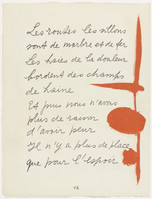 Les routes les sillons
sont de marbre et de fer
Les haies de la douleur
bordent des champs
de haine
Et puis nous n'avons
plus de raison
d'avoir peur
Il n'y a plus de place
que pour l'espoir